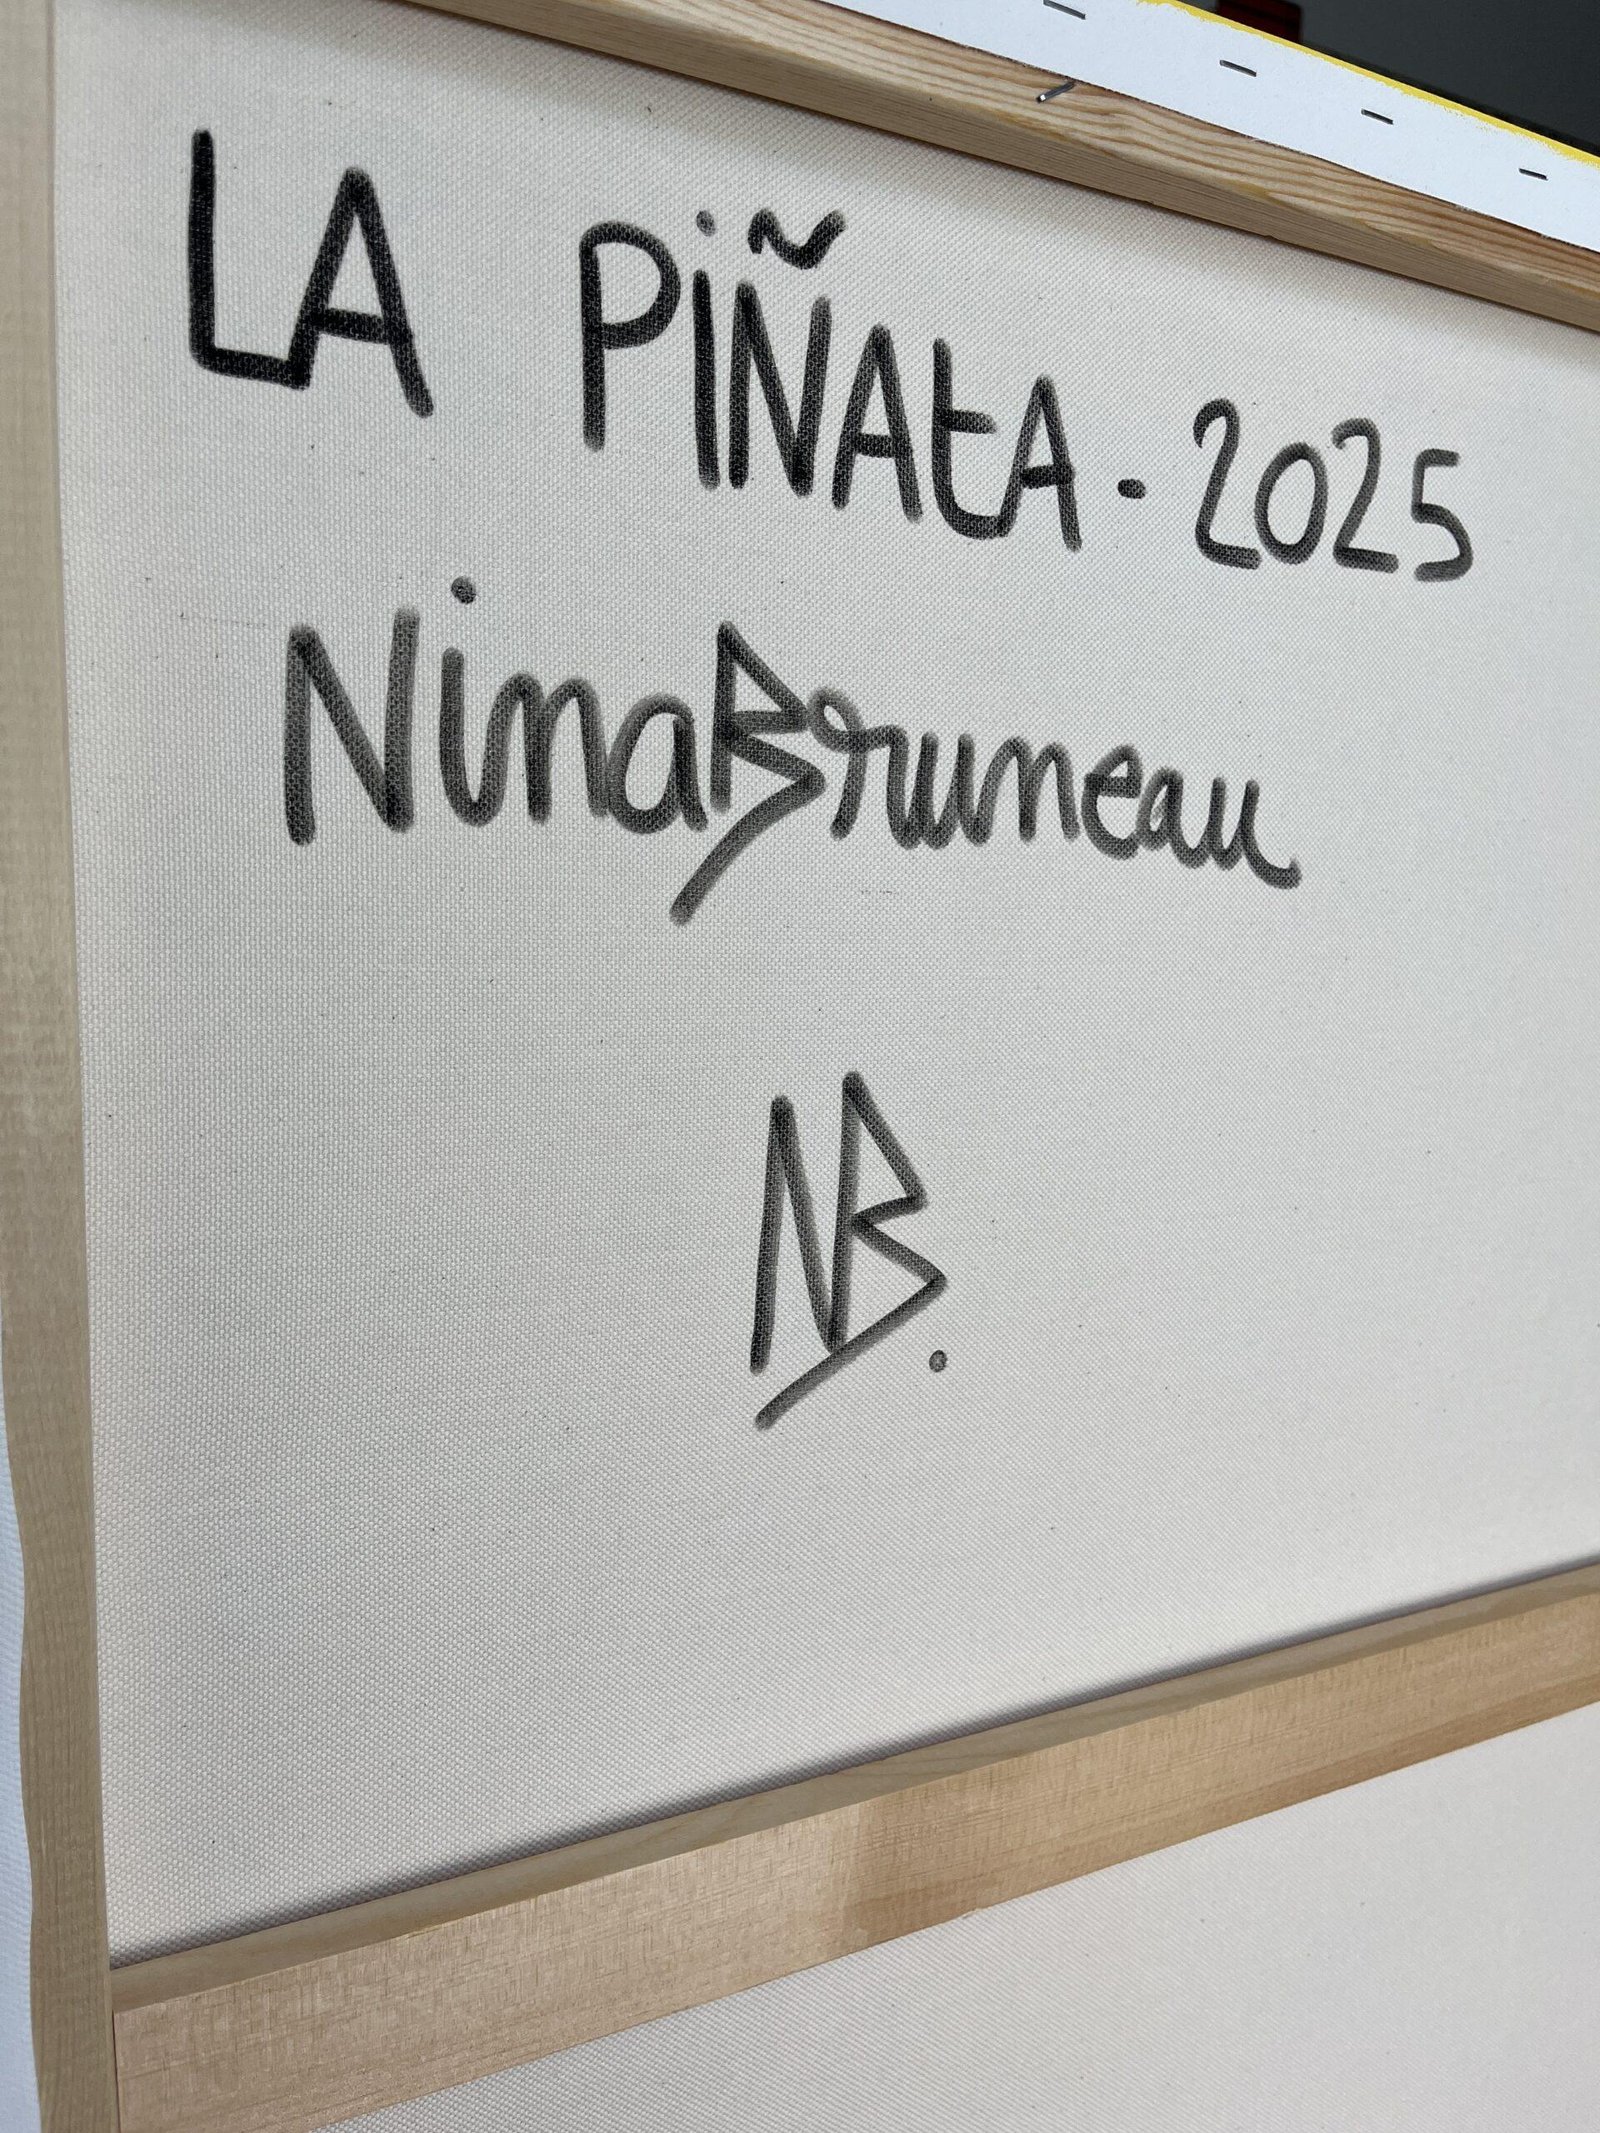 LA PiÑAtA - 2025
NinaBruneau
NB.